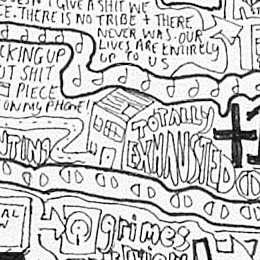 GIVE A SHIT WE
E. THERE IS NO TRIBE + THERE
NEVER WAS. OUR
LIVES ARE ENTIRELY
UP TO US
CKING UP
UT SHIT
PIECE
ON MY PHONE!
TOTALLY
EXHAUSTED
UTING
AL
grimes